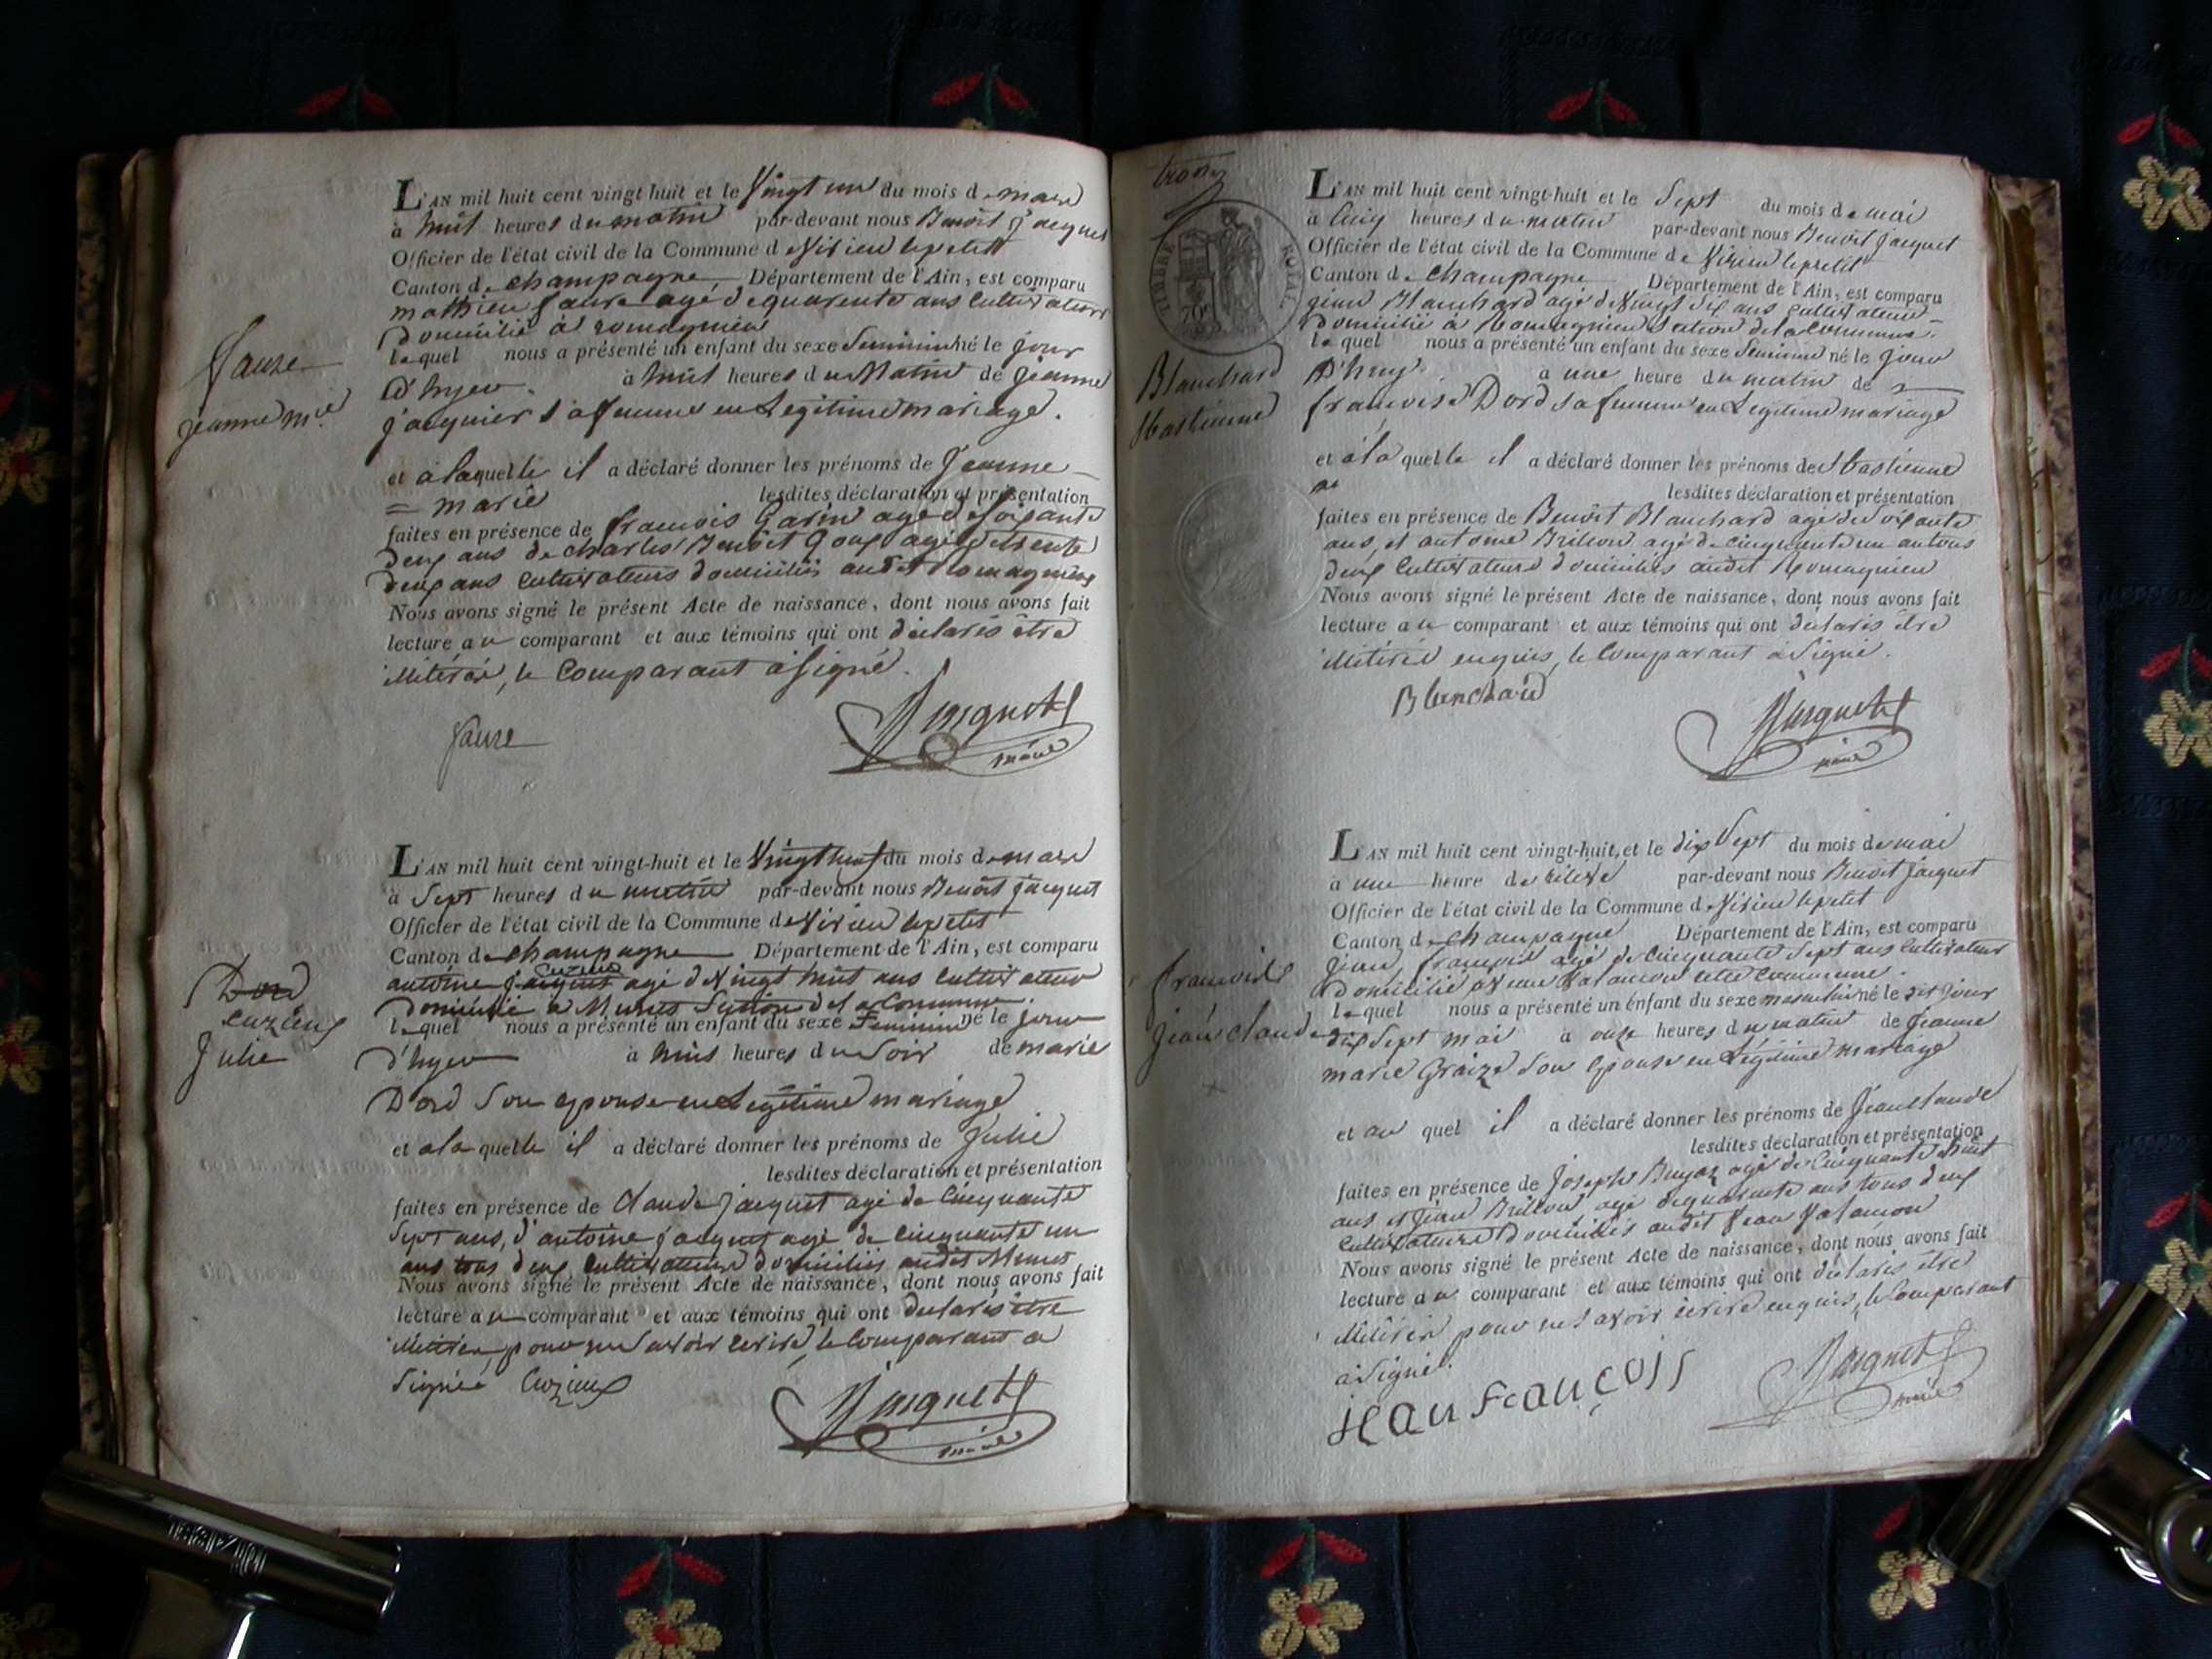 Faure
jeanne m.ie
L'AN mil huit cent vingt huit et le Vingt un du mois de mars
à huit heures du matin par-devant nous Benoit jacquet
Officier de l'état civil de la Commune de Virieu le petit
Canton de champagne Département de l'Ain, est comparu
mathieu faure agé de quarente ans Cultivateur
Domicilié à romagnieu
lequel nous a présenté un enfant du sexe feminin né le jour
D'hyer à huit heures du Matin de jeanne
jacquier sa femme en Legitime mariage.
et à laquelle il a déclaré donner les prénoms de Jeanne
= marie lesdites déclaration et présentation
faites en présence de francois Garin agé de soixante
deux ans de charles Benoit Goux agé de trente
deux ans Cultivateurs domiciliés audit Romagnieu
Nous avons signé le présent Acte de naissance, dont nous avons fait
lecture au comparant et aux témoins qui ont déclarés être
illitéré, le Comparant à signé.
faure Jacquet
maire
Dord
cuzieux
Julie
L'AN mil huit cent vingt-huit et le Vingt huit du mois de mars
à Sept heures du matin par-devant nous Benoit jacquet
Officier de l'état civil de la Commune de Virieu le petit
Canton de champagne Département de l'Ain, est comparu
cuzieux
antoine jacquet agé de Vingt huit ans cultivateur
Domicilié a Munes Section de la Commune
lequel nous a présenté un enfant du sexe Feminin né le jour
d'hyer à huit heures du Soir de marie
Dord son epouse en Legitime mariage
et a la quelle il a déclaré donner les prénoms de Julie
lesdites déclaration et présentation
faites en présence de Claude jacquet agé de Cinquante
Sept ans, d'antoine jacquet agé de cinquante un
ans tous deux Cultivateurs domiciliés audit Munes
Nous avons signé le présent Acte de naissance, dont nous avons fait
lecture au comparant et aux témoins qui ont declarés être
illitéré, pour ne savoir ecrire, le Comparant a
Signé Cuzieux
Jacquet
maire
trois
TIMBRE ROYAL
70c
Blanchard
sbastienne
L'AN mil huit cent vingt-huit et le Sept du mois de mai
à Cinq heures du matin par-devant nous Benoit jacquet
Officier de l'état civil de la Commune de Virieu le petit
Canton de Champagne Département de l'Ain, est comparu
jean Blanchard agé de Vingt Six ans Cultivateur
Domicilié à Romagnieu Section de la Commune
lequel nous a présenté un enfant du sexe feminin né le jour
D'huy à une heure du matin de
francoise Dord sa femme en Legitime mariage
et à la quelle il a déclaré donner les prénoms de sbastienne
lesdites déclaration et présentation
faites en présence de Benoit Blanchard agé de soixante
ans, et antoine Brillion agé de cinquante un an tous
deux Cultivateurs domiciliés audit Romagnieu
Nous avons signé le présent Acte de naissance, dont nous avons fait
lecture au comparant et aux témoins qui ont déclarés être
illitéré enquis, le Comparant à signé.
Blanchard
Jacquet
maire
francois
jean claude
L'AN mil huit cent vingt-huit, et le dix Sept du mois de mai
à une heure de par-devant nous Benoit jacquet
Officier de l'état civil de la Commune de Virieu le petit
Canton de champagne Département de l'Ain, est comparu
jean francois agé de Cinquante Sept ans Cultivateur
Domicilié commune
lequel nous a présenté un enfant du sexe masculin né le dit jour
dix Sept mai à onze heures du matin de jeanne
marie Graize son epouse en Légitime mariage
et au quel il a déclaré donner les prénoms de Jean Claude
lesdites déclaration et présentation
faites en présence de Joseph agé de Cinquante huit
ans et jean Brillion agé de quarente ans tous deux
Cultivateurs Domiciliés audit
Nous avons signé le présent Acte de naissance, dont nous avons fait
lecture au comparant et aux témoins qui ont déclarés être
illitéré pour ne savoir écrire enquis, le Comparant
à Signé.
jean Francois
Jacquet
maire